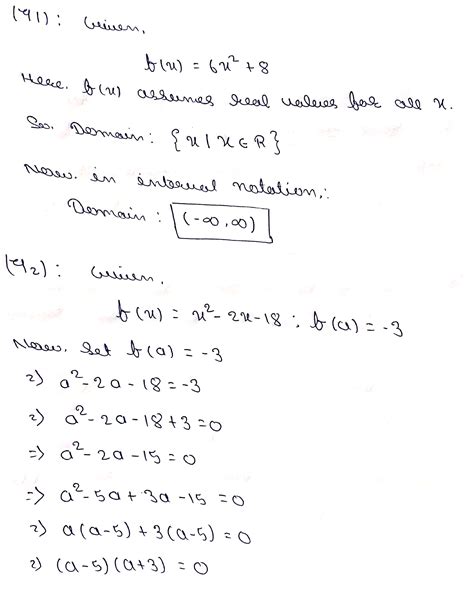 (Q1): Given,
f(x) = 6x² + 8
Here. f(x) assumes real values for all x.
So. Domain: {x | x ∈ R}
Now. in interval notation,:
Domain: (-∞, ∞)
(Q2): Given,
f(x) = x² - 2x - 18 ; f(a) = -3
Now. Set f(a) = -3
=) a² - 2a - 18 = -3
=) a² - 2a - 18 + 3 = 0
=) a² - 2a - 15 = 0
=) a² - 5a + 3a - 15 = 0
=) a(a-5) + 3(a-5) = 0
=) (a-5)(a+3) = 0